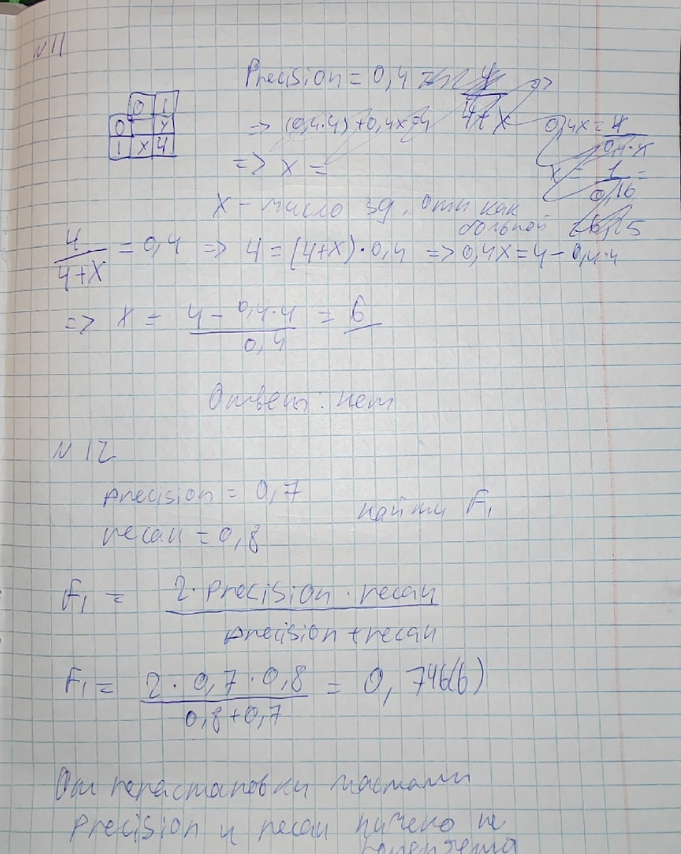 N 11
Precision = 0,4
0 1
0 x
1 x 4
=> (0,4·4) + 0,4x = 4
4+x
0,4x = 4
=> x =
x – число зд. отм как
больной
4/(4+x) = 0,4 => 4 = (4+x)·0,4 => 0,4x = 4 – 0,4·4
=> x = (4 – 0,4·4)/0,4 = 6
Ответ: нет
N 12
precision = 0,7
recall = 0,8
найти F₁
F₁ = (2·precision·recall)/(precision + recall)
F₁ = (2·0,7·0,8)/(0,8+0,7) = 0,746(6)
От перестановки местами
precision и recall ничего не